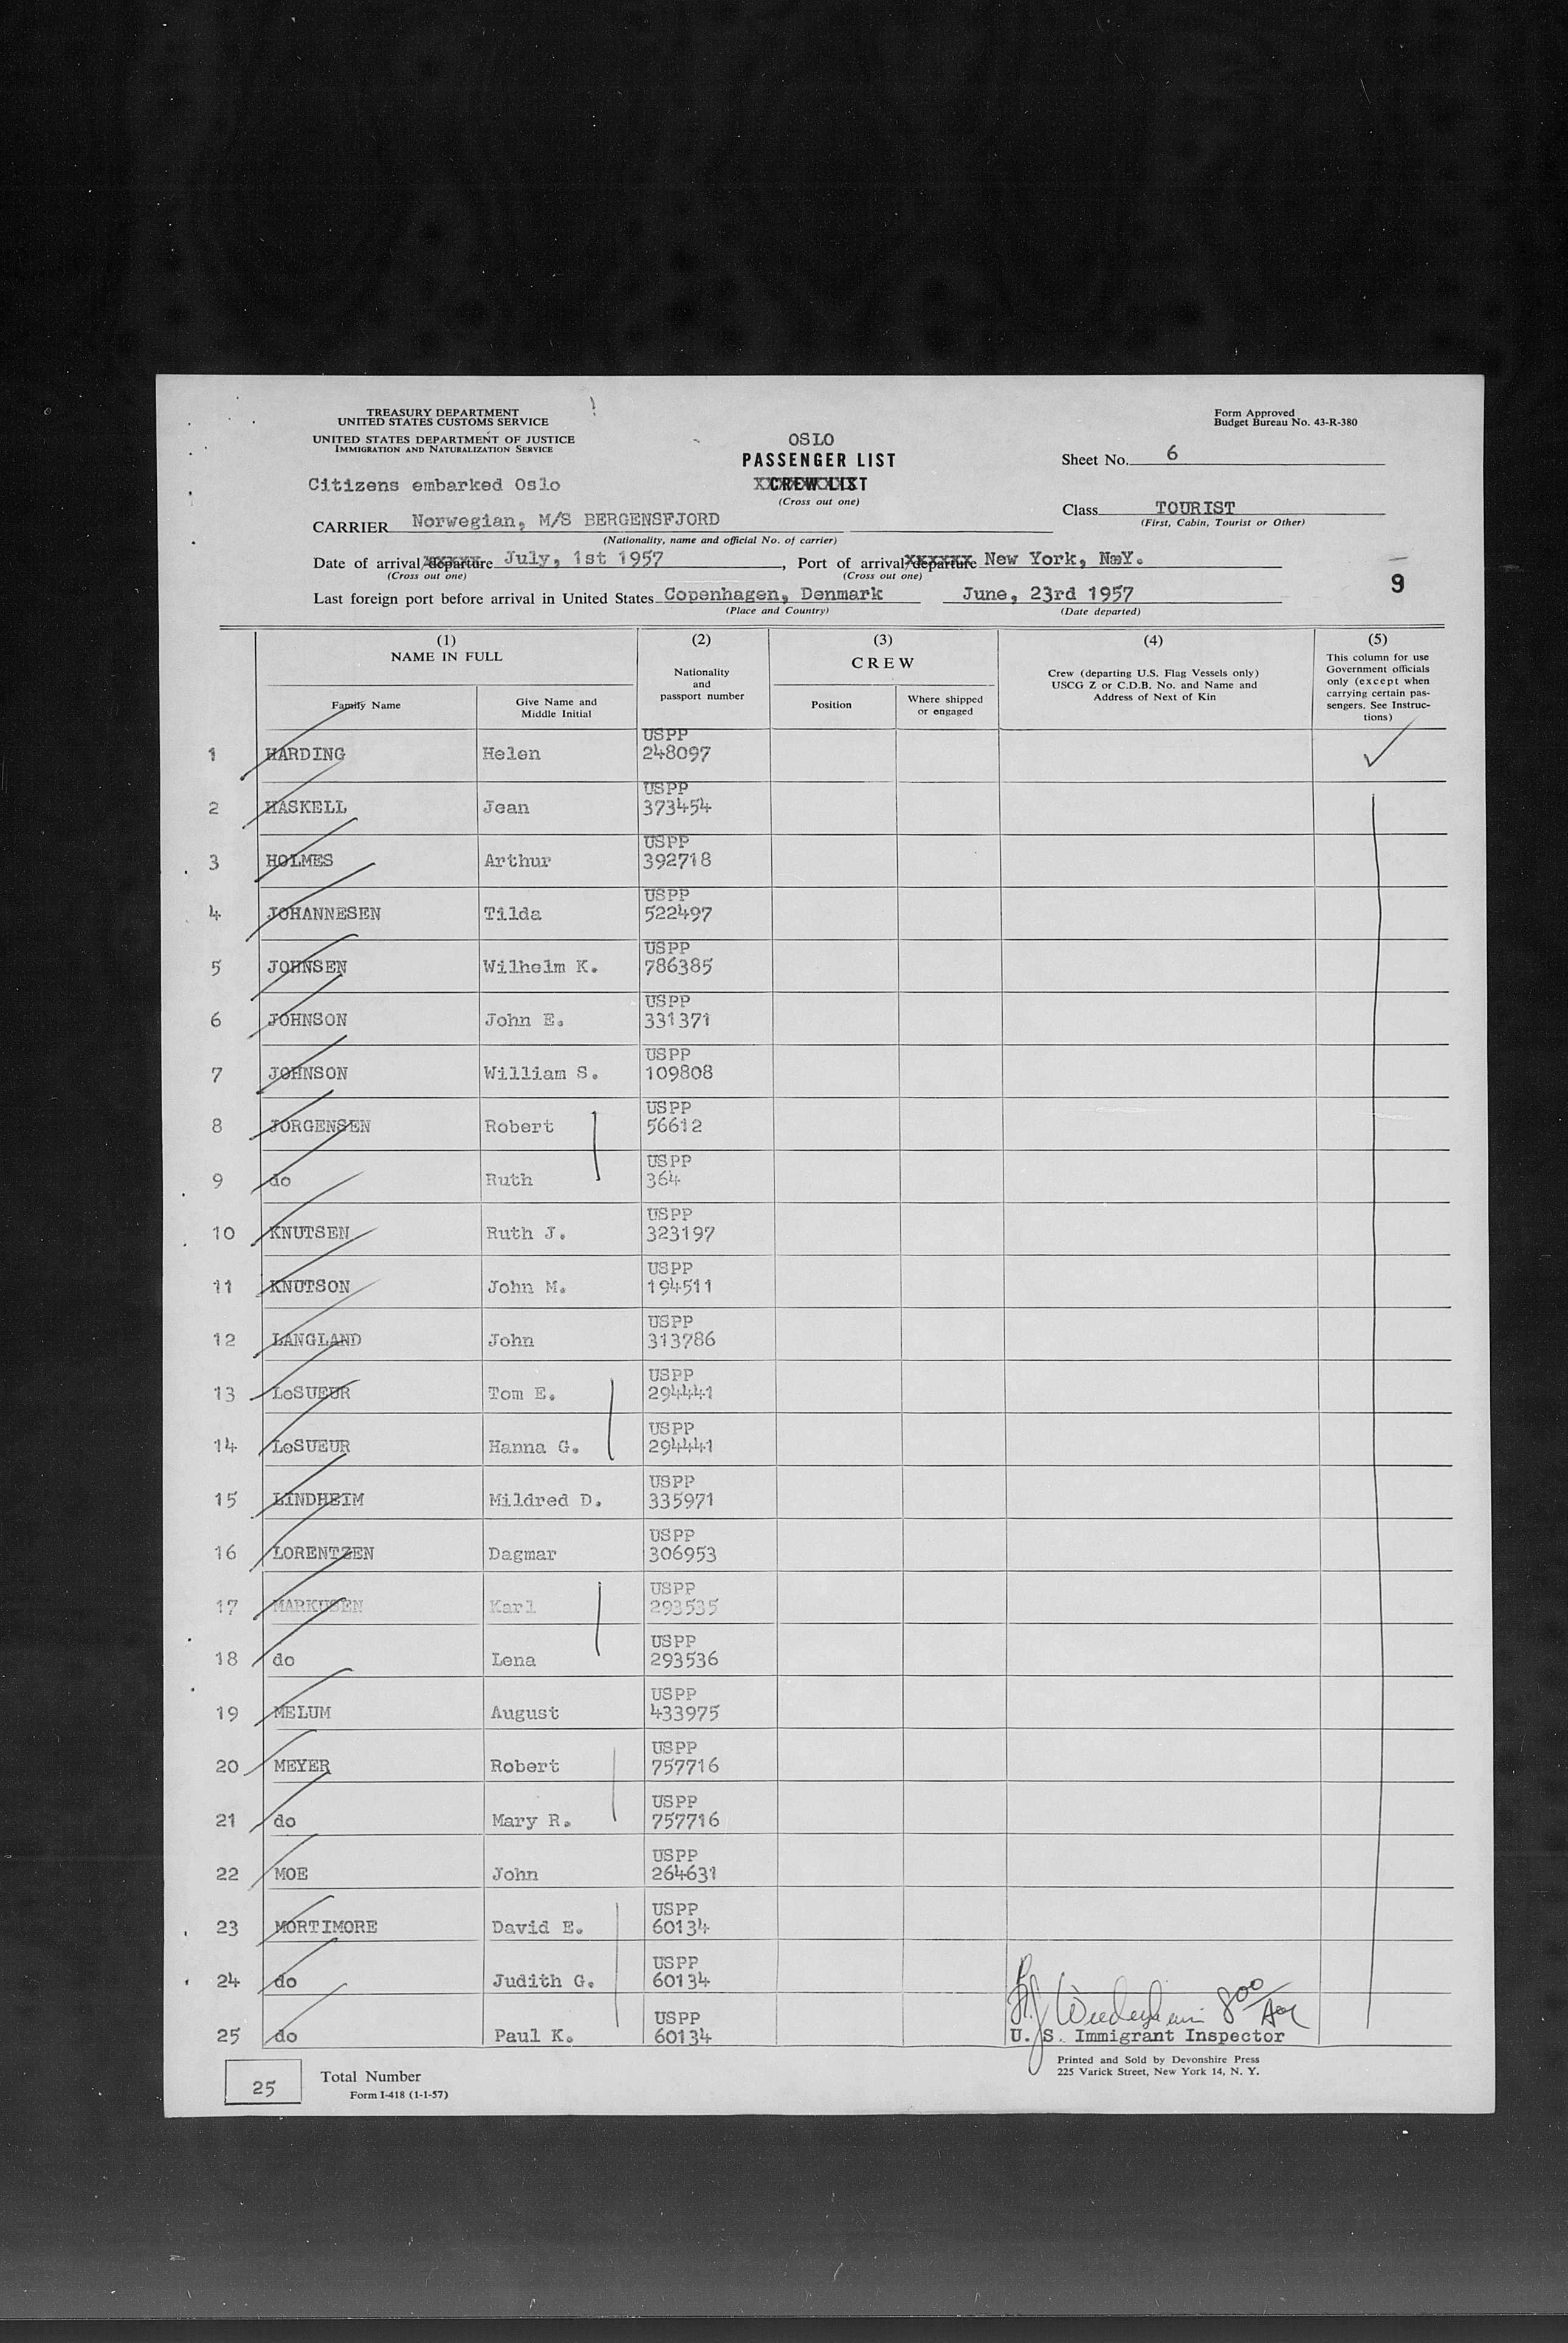 TREASURY DEPARTMENT
UNITED STATES CUSTOMS SERVICE
UNITED STATES DEPARTMENT OF JUSTICE
IMMIGRATION AND NATURALIZATION SERVICE
Form Approved
Budget Bureau No. 43-R-380
OSLO
PASSENGER LIST
CREW LIST
(Cross out one)
Sheet No. 6
Citizens embarked Oslo
Class TOURIST
(First, Cabin, Tourist or Other)
CARRIER Norwegian, M/S BERGENSFJORD
(Nationality, name and official No. of carrier)
Date of arrival/departure July, 1st 1957, Port of arrival/departure New York, N.Y.
(Cross out one) (Cross out one)
9
Last foreign port before arrival in United States Copenhagen, Denmark June, 23rd 1957
(Place and Country) (Date departed)
(1) (2) (3) (4) (5)
NAME IN FULL
Family Name
Give Name and
Middle Initial
Nationality
and
passport number
CREW
Position
Where shipped
or engaged
Crew (departing U.S. Flag Vessels only)
USCG Z or C.D.B. No. and Name and
Address of Next of Kin
This column for use
Government officials
only (except when
carrying certain pas-
sengers. See Instruc-
tions)
USPP
1 HARDING Helen 248097
USPP
2 HASKELL Jean 373454
USPP
3 HOLMES Arthur 392718
USPP
4 JOHANNESEN Tilda 522497
USPP
5 JOHNSEN Wilhelm K. 786385
USPP
6 JOHNSON John E. 331371
USPP
7 JOHNSON William S. 109808
USPP
8 JORGENSEN Robert 56612
USPP
9 do Ruth 364
USPP
10 KNUTSEN Ruth J. 323197
USPP
11 KNUTSON John M. 194511
USPP
12 LANGLAND John 313786
USPP
13 LeSUEUR Tom E. 294441
USPP
14 LeSUEUR Hanna G. 294441
USPP
15 LINDHEIM Mildred D. 335971
USPP
16 LORENTZEN Dagmar 306953
USPP
17 MARKUSEN Karl 293535
USPP
18 do Lena 293536
USPP
19 MELUM August 433975
USPP
20 MEYER Robert 757716
USPP
21 do Mary R. 757716
USPP
22 MOE John 264631
USPP
23 MORTIMORE David E. 60134
USPP
24 do Judith G. 60134
USPP
25 do Paul K. 60134
U. S. Immigrant Inspector
25 Total Number
Form I-418 (1-1-57)
Printed and Sold by Devonshire Press
225 Varick Street, New York 14, N. Y.